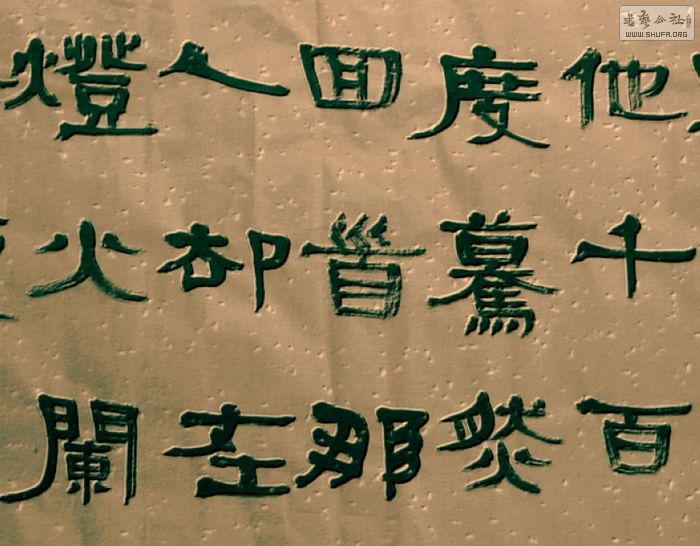 他千百
度驀然
回首那
人却在
燈火闌
書藝公社
WWW.SHUFA.ORG